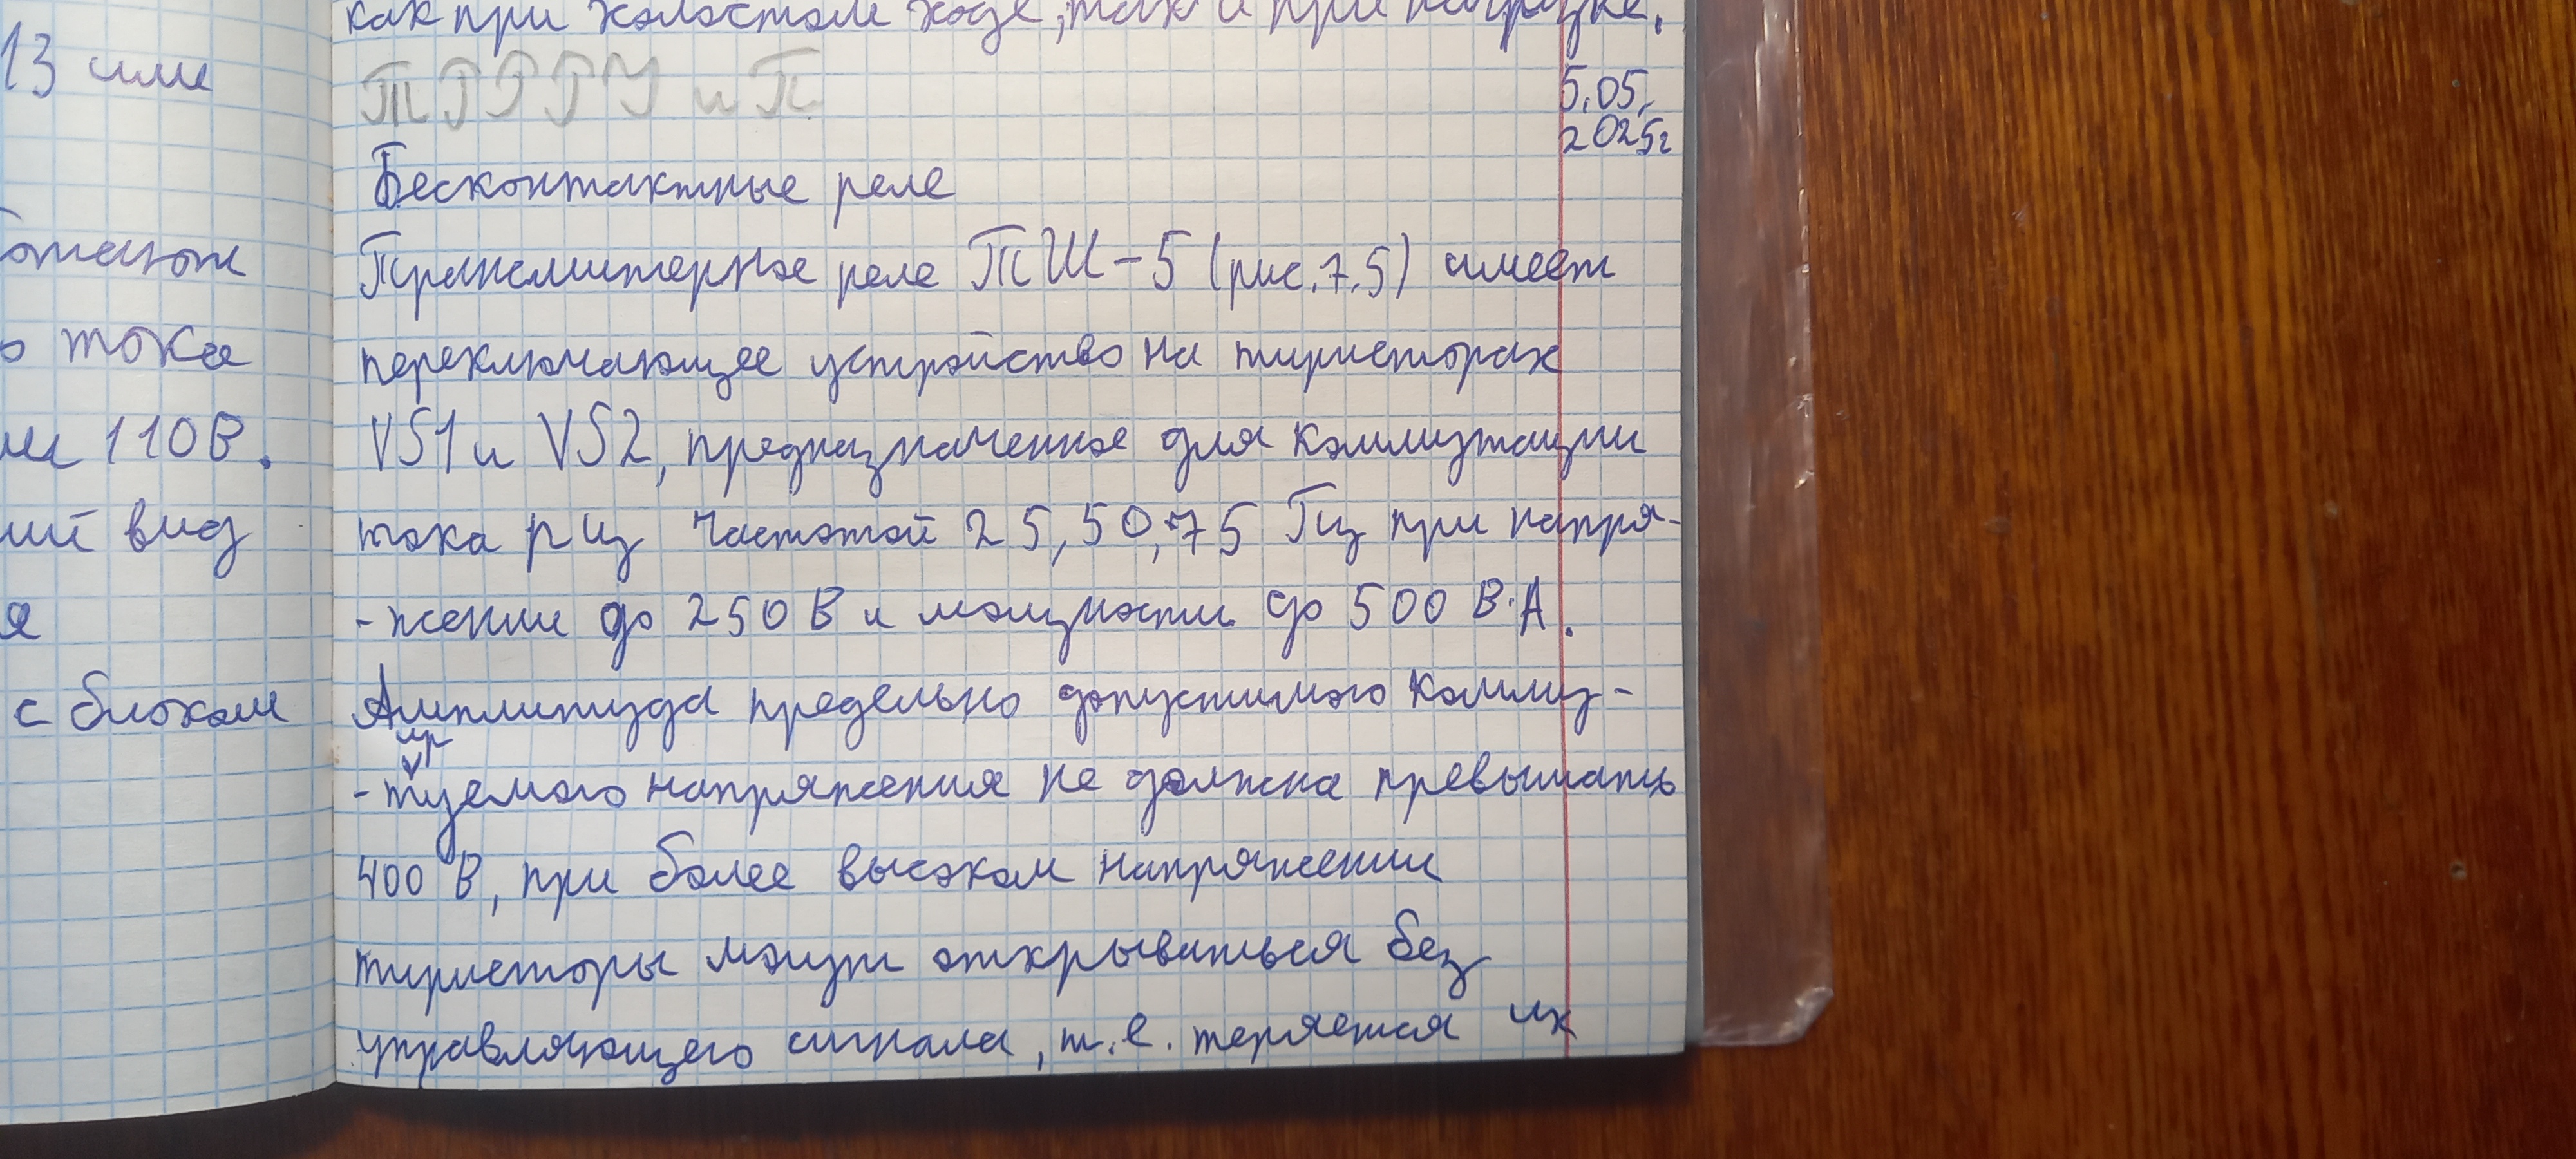 13 или
о тока
110В.
ий вид
я
с блоком
как при холостом ходе, так и при нагрузке.
5.05.
2025г
Бесконтактные реле
Трансмитерное реле ТШ-5 (рис. 7.5) имеет
переключающее устройство на тиристорах
VS1 и VS2, предназначенное для коммутации
тока рц частотой 25, 50, 75 Гц при напря-
-жении до 250 В и мощности до 500 В·А.
Амплитуда предельно допустимого комму-
ир
-туемого напряжения не должна превышать
400 В, при более высоком напряжении
тиристоры могут открываться без
управляющего сигнала, т.е. теряется их